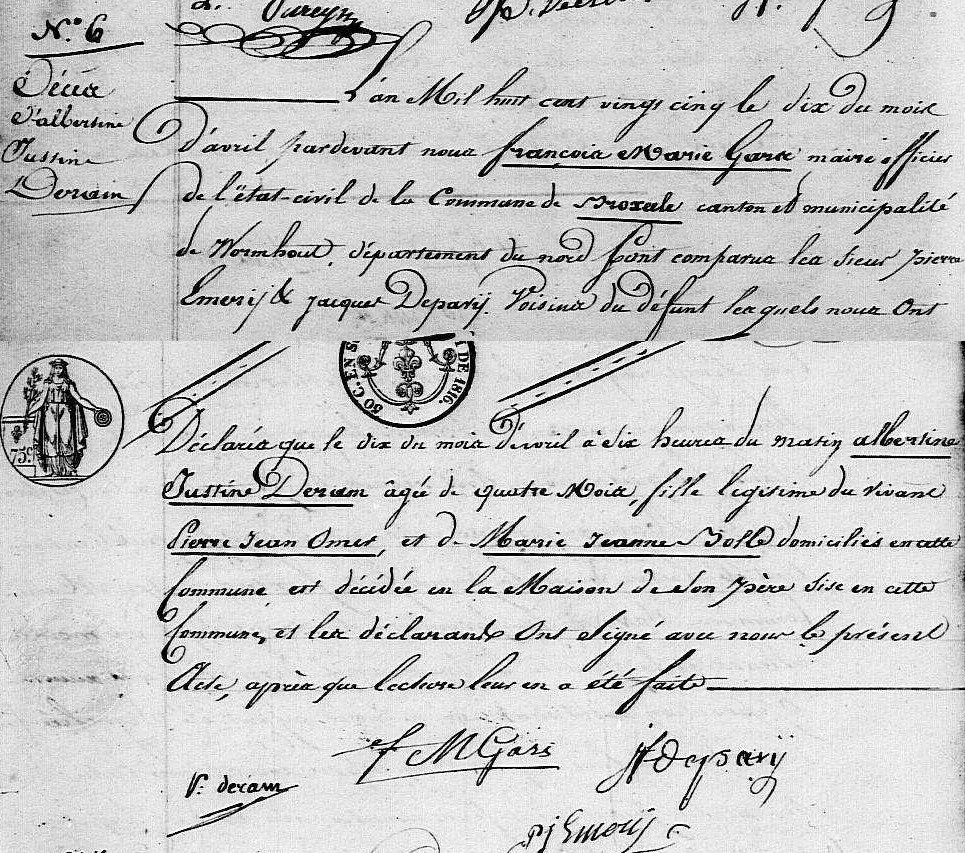 N.° 6
Décès
d'albertine
Justine
Deram
L'an Mil huit cent vingt cinq le dix du mois
d'avril pardevant nous françois Marie Gars maire officier
de l'état-civil de la Commune de Broxele canton et municipalité
de Wormhout, département du nord sont comparus les sieur pierre
Emerij & jacques Deparij. Voisins du défunt lesquels nous Ont
50 C. EN S
DE 1816.
75c
Déclarés que le dix du mois d'avril à dix heures du matin albertine
Justine Deram âgée de quatre Mois, fille legitime du vivant
Pierre Jean Omer, et de Marie Jeanne Bolle domiciliés en cette
Commune, est décédée en la Maison de son père sise en cette
Commune, et les déclarants Ont signé avec nous le présent
Acte, après que lecture leur en a été faite
f M Gars
jf deparij
P. deram
pj Emerij